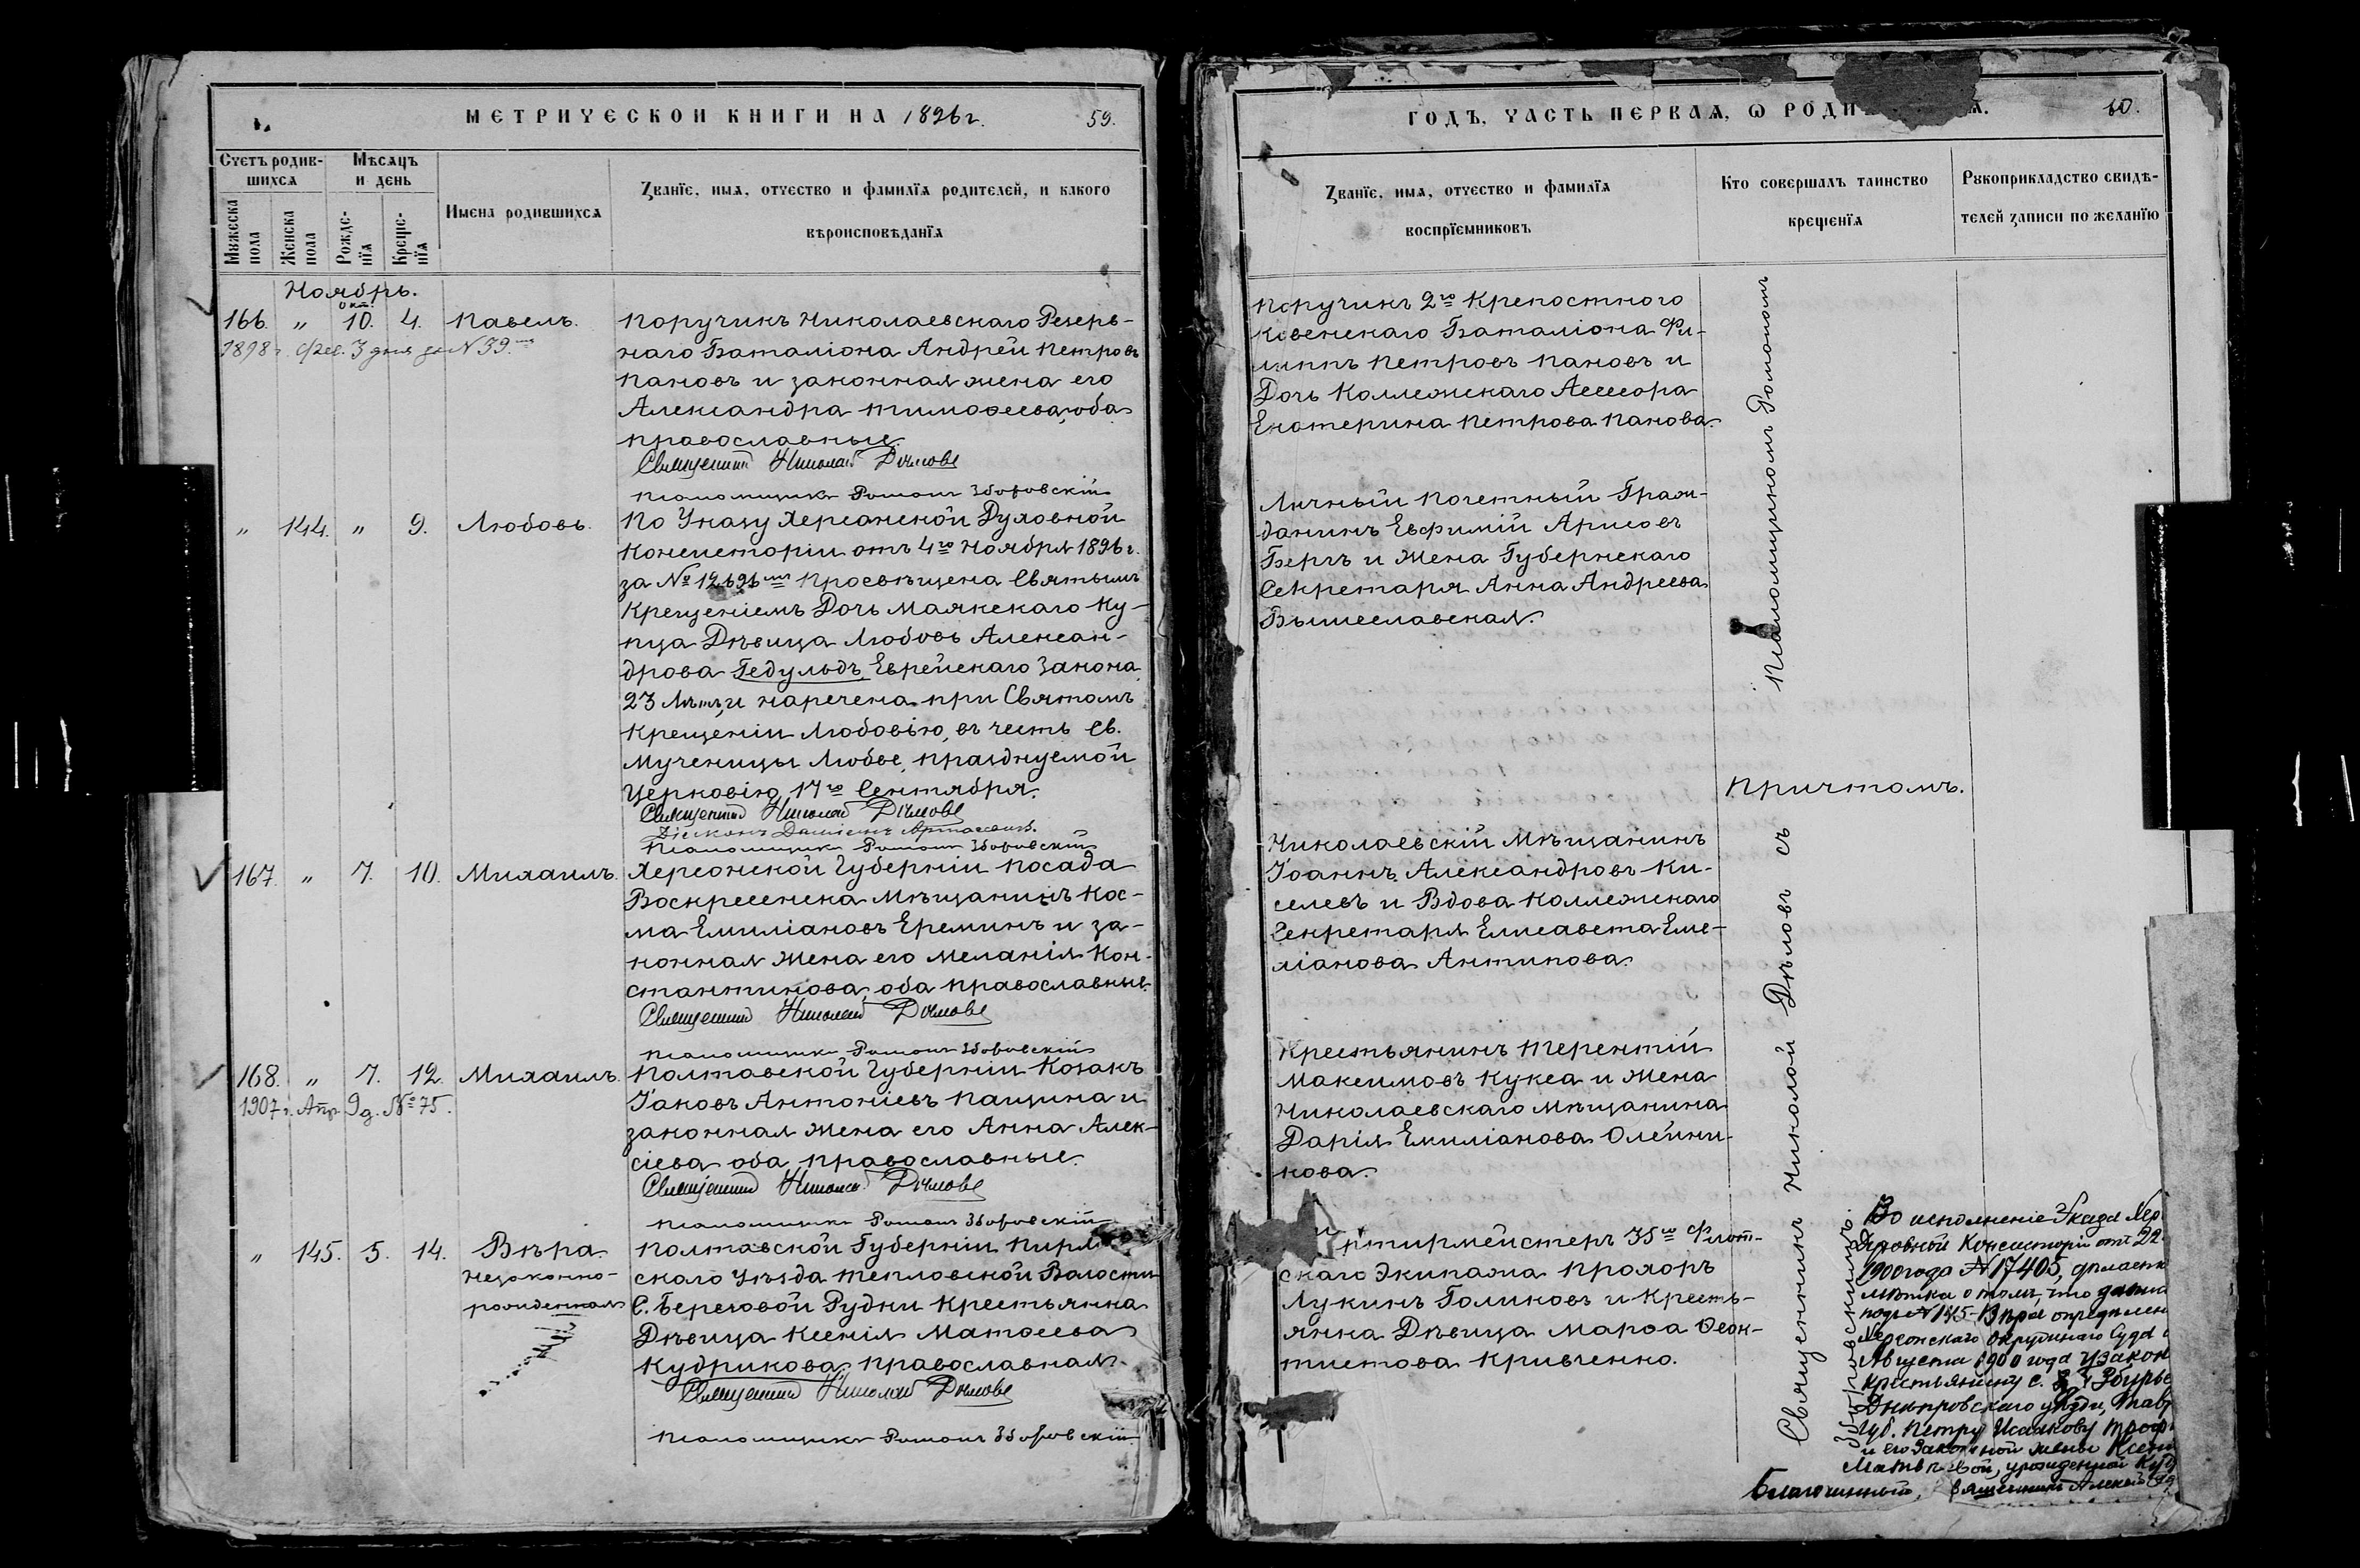 МЕТРИЧЕСКОЙ КНИГИ НА 1896 г. 59.
Счетъ родив-
шихся
Мѣсяцъ
и день
Мужеска
пола
Женска
пола
Рожде-
нїя
Креще-
нїя
Имена родившихся
Званїе, имя, отчество и фамилїя родителей, и какого
вѣроисповѣданїя
Ноябрь.
окт.
166. " 10. 4. Павелъ.
1898 г. Фев. 3 дня за N 39.
Поручикъ Николаевскаго Резерв-
наго Баталіона Андрей Петровъ
Пановъ и законная жена его
Александра Тимоѳеева, оба
православные.
Священникъ Николай Дѣловъ
Псаломщикъ Романъ Зборовскій
" 144. " 9. Любовь.
По Указу Херсонской Духовной
Консисторіи отъ 4го Ноября 1896 г.
за № 12696 просвѣщена Святымъ
Крещеніемъ Дочь Маякскаго Ку-
пца Дѣвица Любовь Алексан-
дрова Гедульдъ, Еврейскаго Закона,
23 Лѣтъ, и наречена при Святомъ
Крещеніи Любовію, въ честь Св.
Мученицы Любве, празднуемой
Церковію 17го Сентября.
Священникъ Николай Дѣловъ
Діаконъ
Псаломщикъ Романъ Зборовскій
167. " 7. 10. Михаилъ.
Херсонской Губерніи Посада
Воскресенска Мѣщанинъ Кос-
ма Емиліановъ Ереминъ и за-
конная Жена его Меланія Кон-
стантинова, оба православные.
Священникъ Николай Дѣловъ
Псаломщикъ Романъ Зборовскій
168. " 7. 12. Михаилъ.
1907 г. Апр. 9 д. № 75.
Полтавской Губерніи Козакъ
Іаковъ Антоніевъ Пащина и
законная Жена его Анна Алек-
сіева оба православные.
Священникъ Николай Дѣловъ
Псаломщикъ Романъ Зборовскій
" 145. 5. 14. Вѣра
незаконно-
рожденная
Полтавской Губерніи Пиря
скаго Уѣзда Тепловской Волости
С. Березовой Рудки Крестьянка
Дѣвица Ксенія Матѳеева
Кудрикова, православная.
Священникъ Николай Дѣловъ
Псаломщикъ Романъ Зборовскій
ГОДЪ, ЧАСТЬ ПЕРВАЯ, Ѡ РОДИ 60.
Званїе, имя, отчество и фамилїя
воспрїемниковъ
Кто совершалъ таинство
крещенїя
Рукоприкладство свидѣ-
телей записи по желанїю
Поручикъ 2го Крепостного
Ковенскаго Баталіона Фи-
липпъ Петровъ Пановъ и
Дочь Коллежскаго Ассесора
Екатерина Петрова Панова.
Личный Почетный Граж-
данинъ Евфимій Арисовъ
Бергъ и Жена Губернскаго
Секретаря Анна Андреева
Вышеславская.
Николаевскій Мѣщанинъ
Іоаннъ Александровъ Ки-
селевъ и Вдова Коллежскаго
Секретаря Елисавета Еме-
ліанова Антипова.
Крестьянинъ Терентій
Максимовъ Кукса и Жена
Николаевскаго Мѣщанина
Дарія Емиліанова Олейни-
кова.
ртирмейстеръ 35го Флот-
скаго Экипажа Прохоръ
Лукинъ Голиковъ и Кресть-
янка Дѣвица Марѳа Ѳеок-
тистова Кривченко.
Священникъ Николай Дѣловъ съ Псаломщикомъ Романомъ
Зборовскимъ.
Причтомъ.
Во исполненіе Указа Хер
Духовной Консисторіи отъ 22
1900 года № 17405, дѣлаетс
мѣтка о томъ, что давшая
подъ № 145 Вѣра опредѣлен
Херсонскаго Окружнаго Суда
Августа 1900 года Узакон
крестьянину с. Збурье
Днѣпровскаго уѣзда, Тавр
Губ. Петру Исаакову Троф
и его законной жены Ксені
Матвѣевой, урожденной Куд
Благочинный, Священникъ Алексѣй